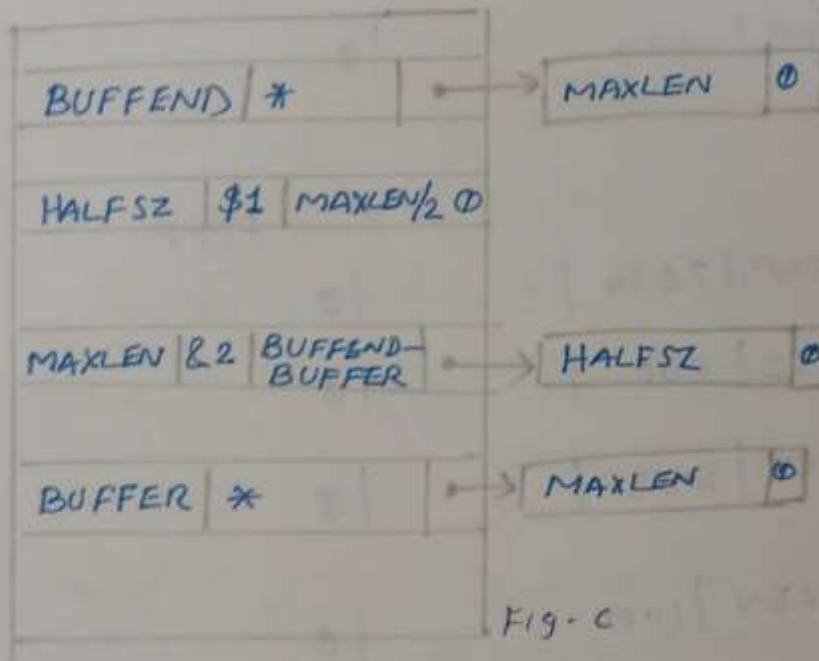 BUFFEND * MAXLEN 0
HALFSZ $1 MAXLEN/2 0
MAXLEN &2 BUFFEND-
BUFFER HALFSZ 0
BUFFER * MAXLEN 0
Fig- C